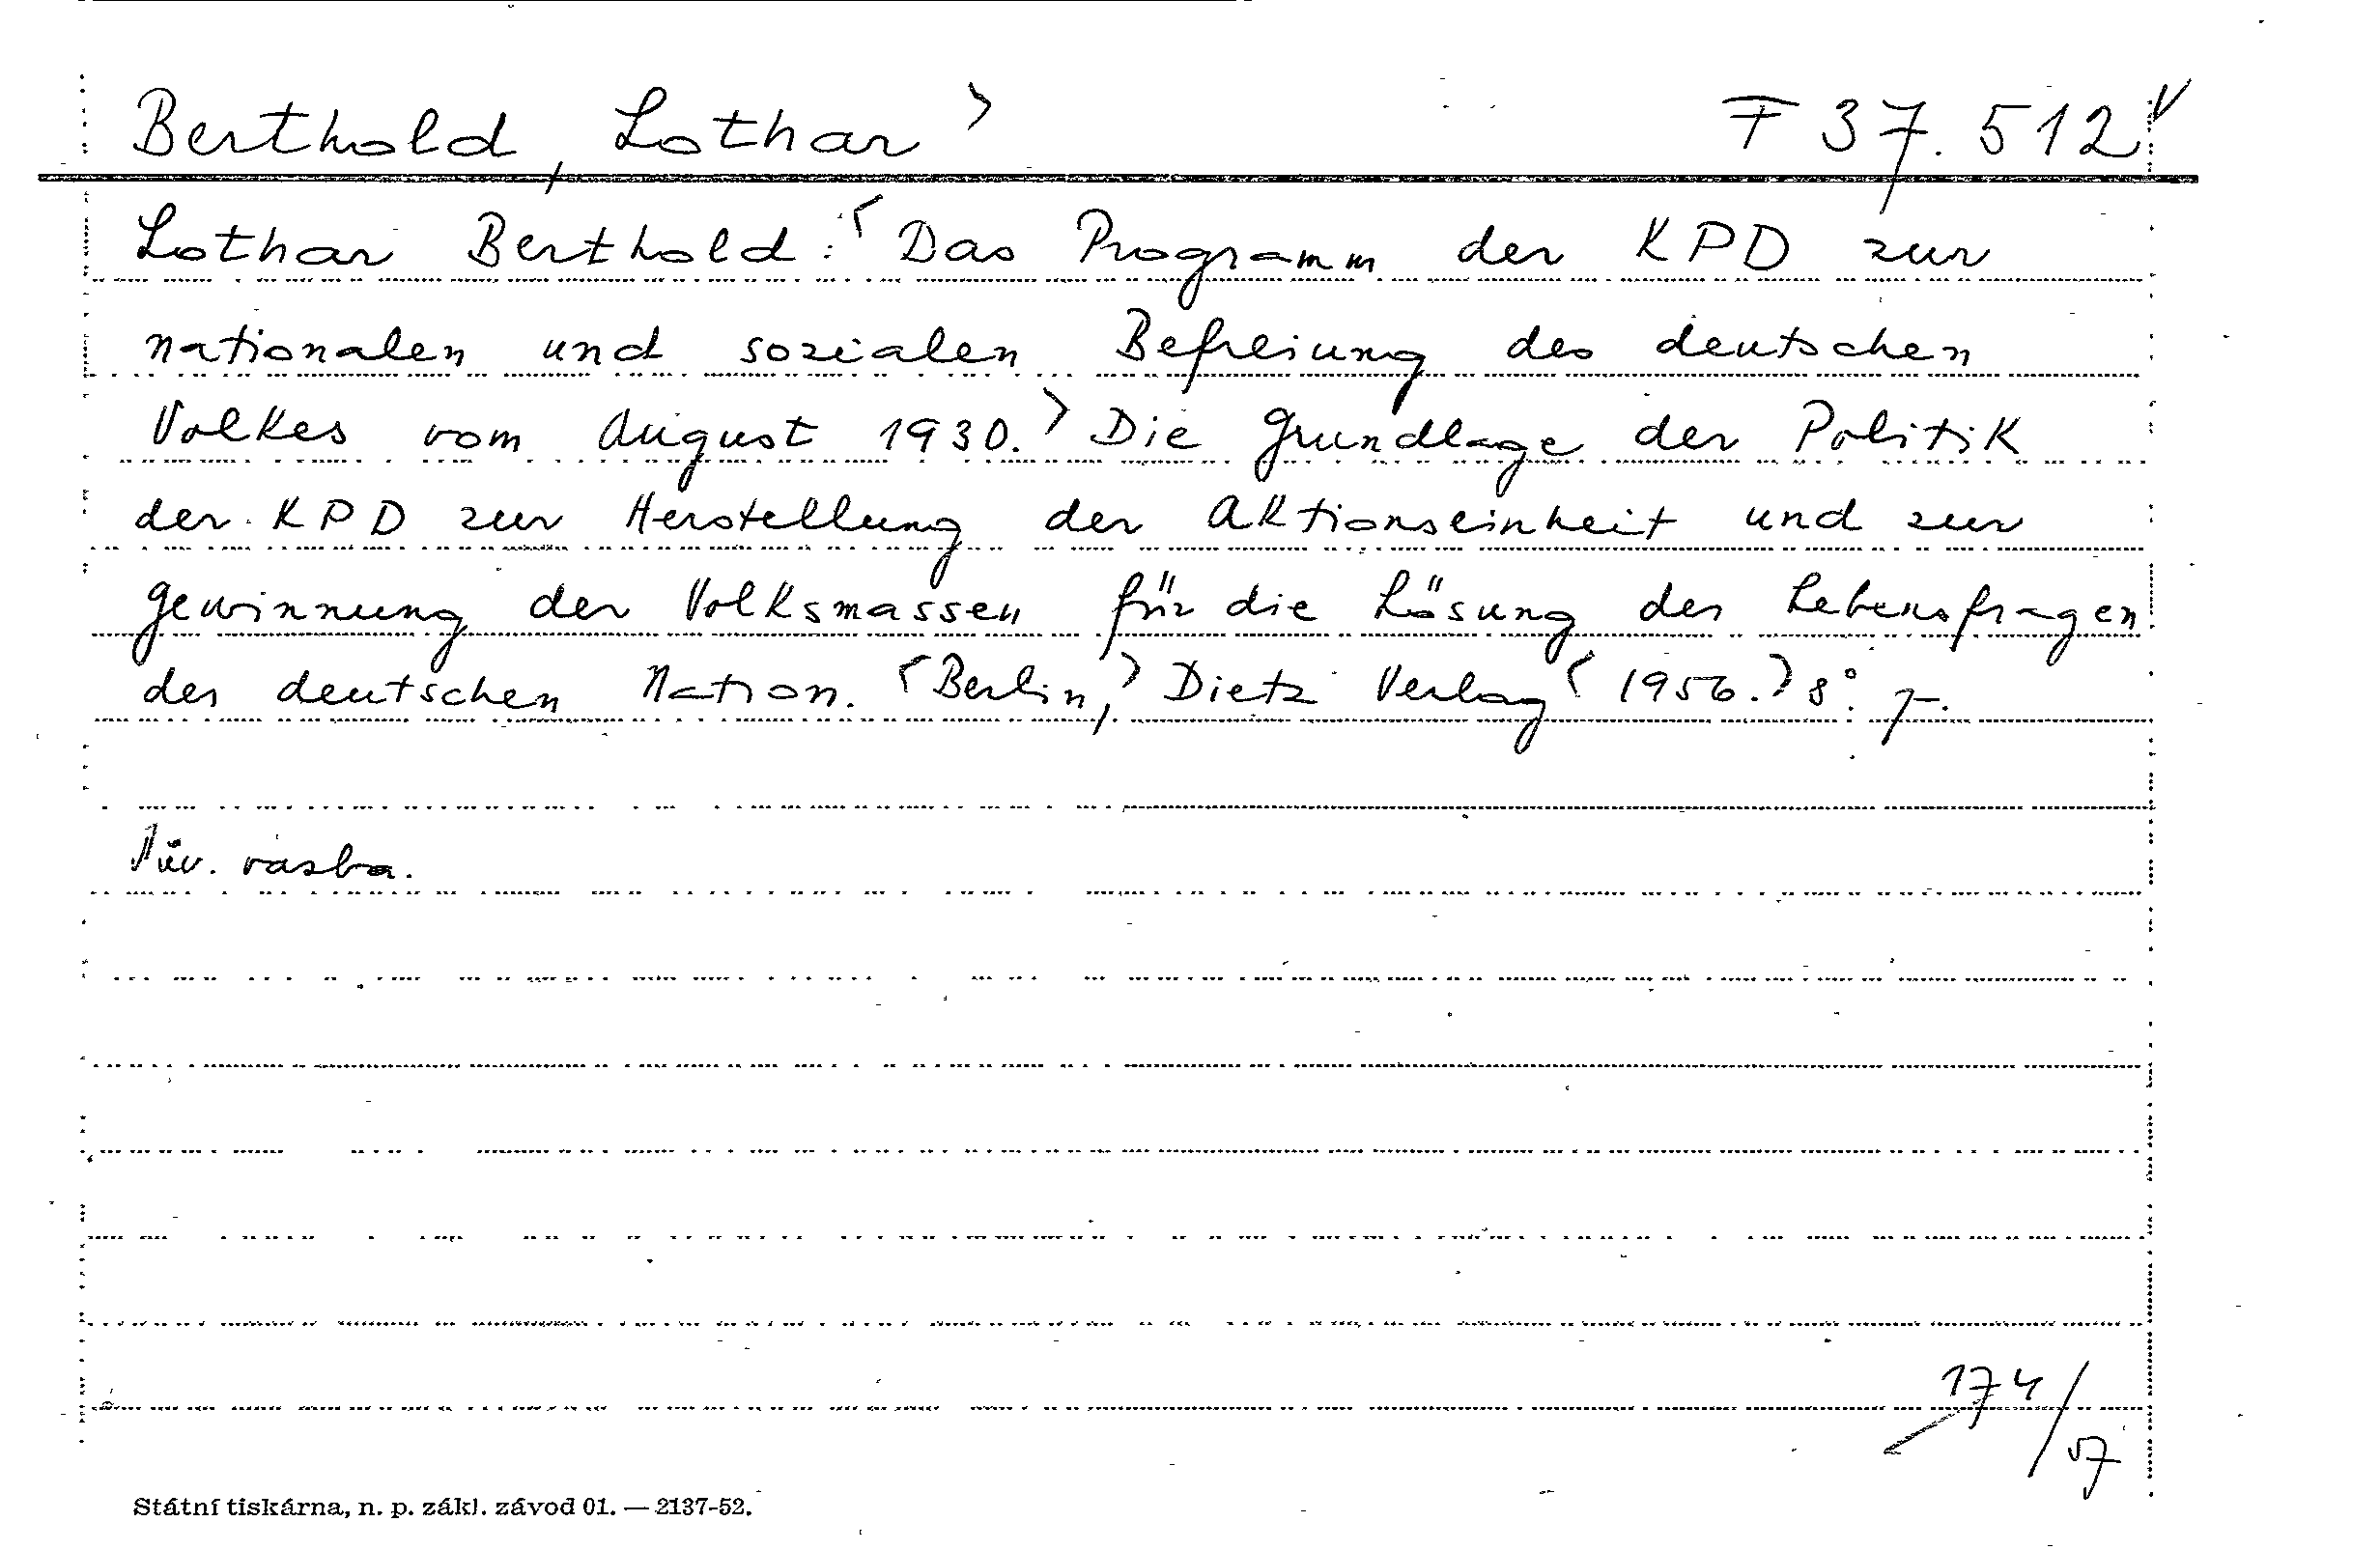 Berthold, Lothar> F 37.512
Lothar Berthold: <Das Programm der KPD zur
nationalen und sozialen Befreiung des deutschen
Volkes vom August 1930.> Die Grundlage der Politik
der KPD zur Herstellung der Aktionseinheit und zur
Gewinnung der Volksmassen für die Lösung der Lebensfragen
der deutschen Nation. <Berlin,> Dietz Verlag <1956.> 8°.
Pův. vazba.
174/57
Státní tiskárna, n. p. zákl. závod 01. — 2137-52.